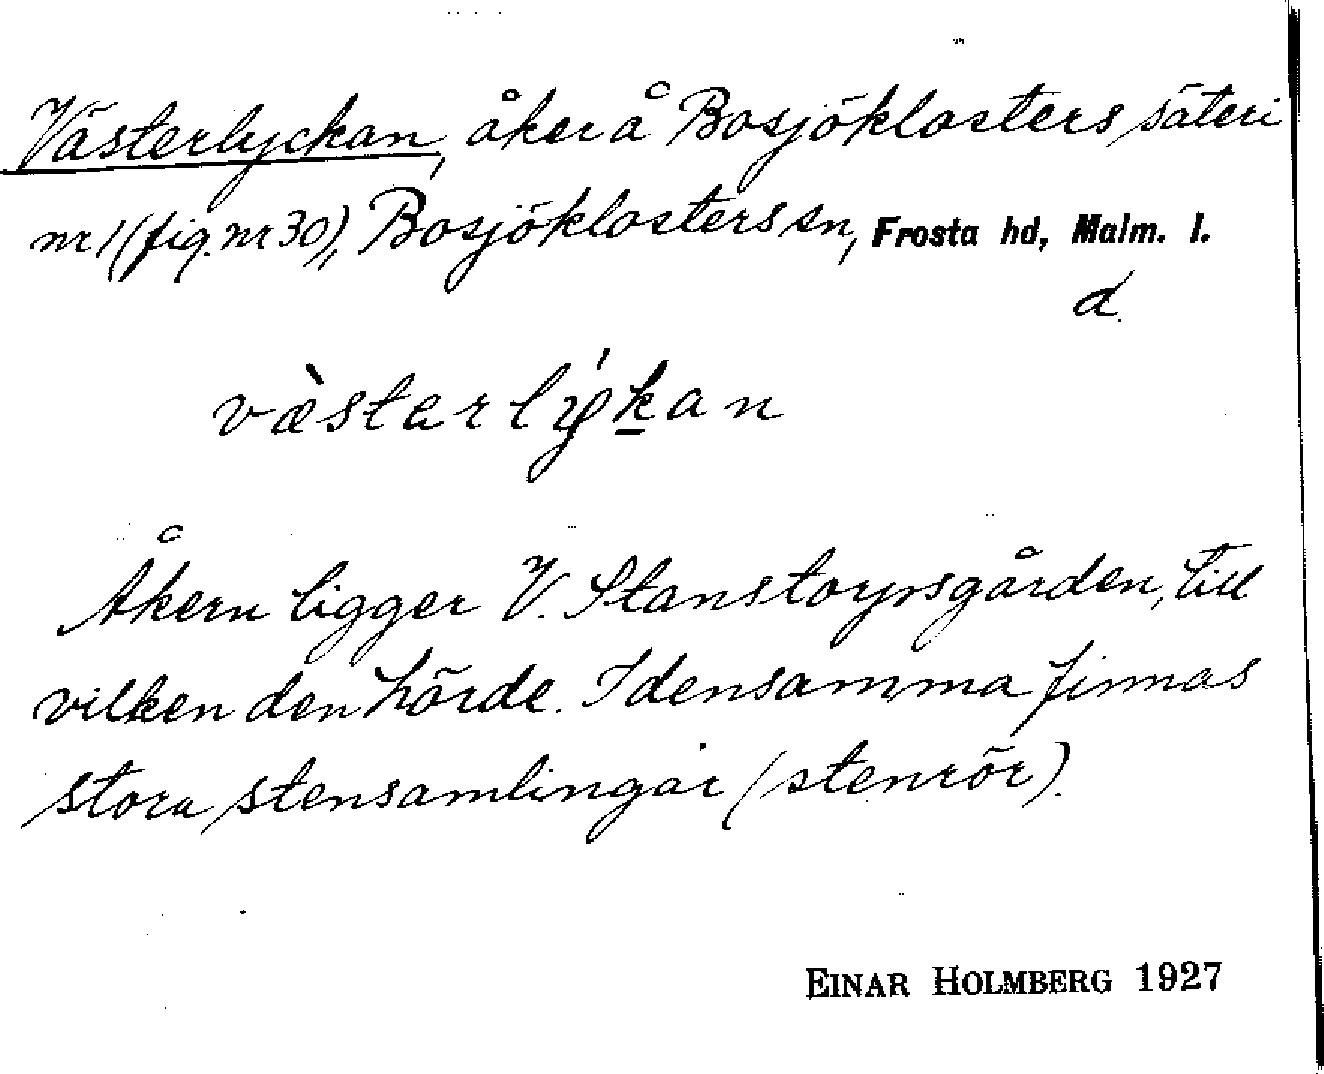 Västerlyckan, åker å Bosjöklosters säteri
nr 1 (fig. nr 30), Bosjöklosters sn, Frosta hd, Malm. l.
d.
væ̀starlýkan
Åkern ligger V. Stanstorpsgården, till
vilken den hörde. I densamma finnas
stora stensamlingar (stenrör).
EINAR HOLMBERG 1927